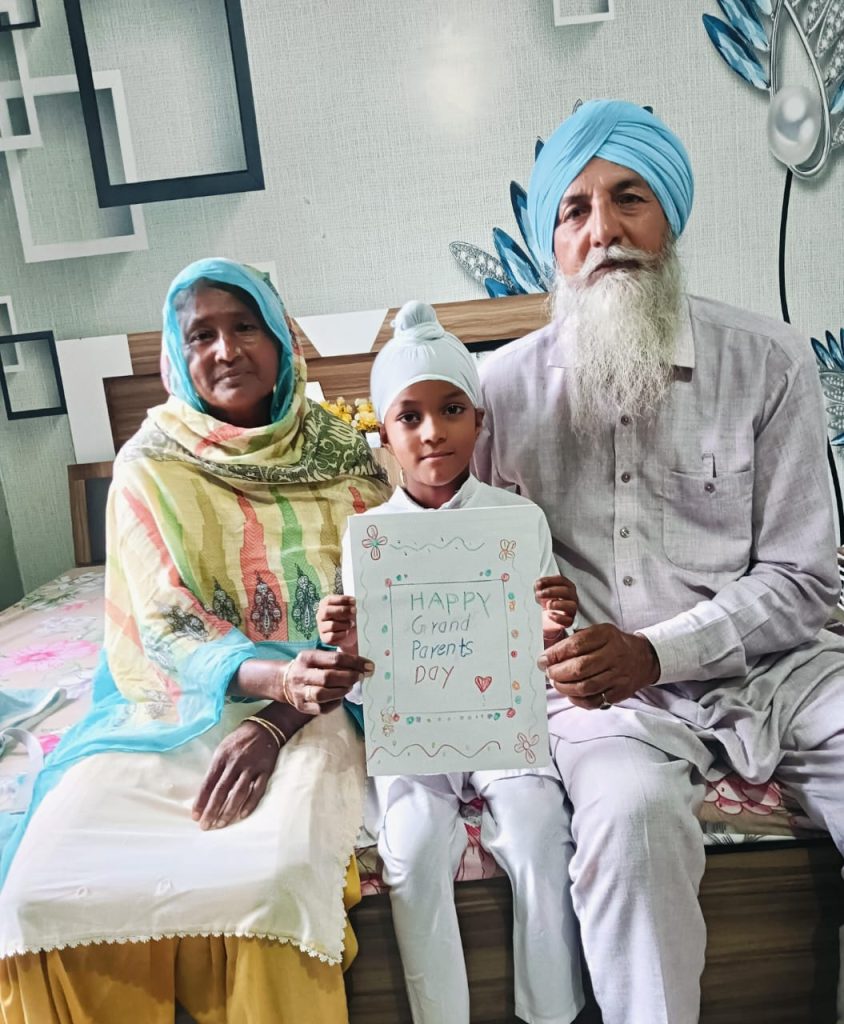 HAPPY
Grand
Parents
DAY